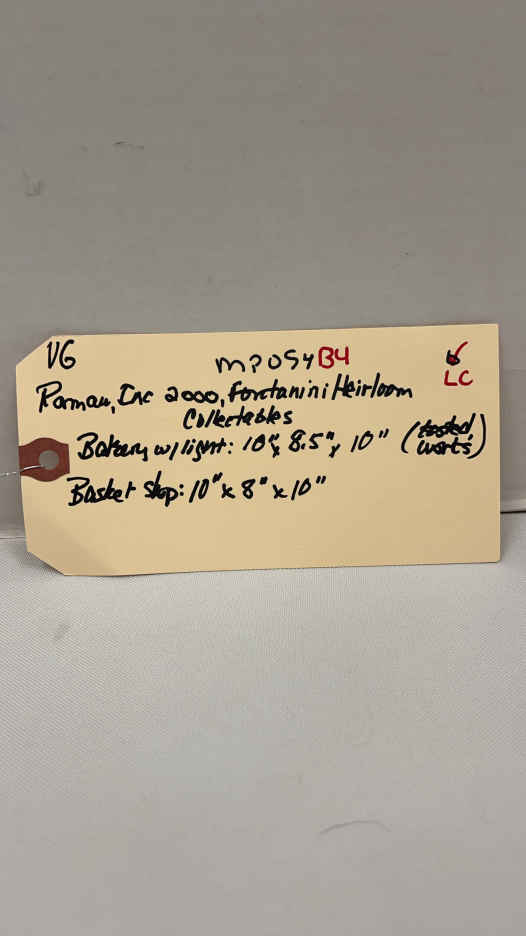 VG
MPOS4B4
LC
Roman, Inc 2000, Fontanini Heirloom
Collectables
Bakery w/light: 10" x 8.5" x 10" (tested works)
Basket shop: 10" x 8" x 10"